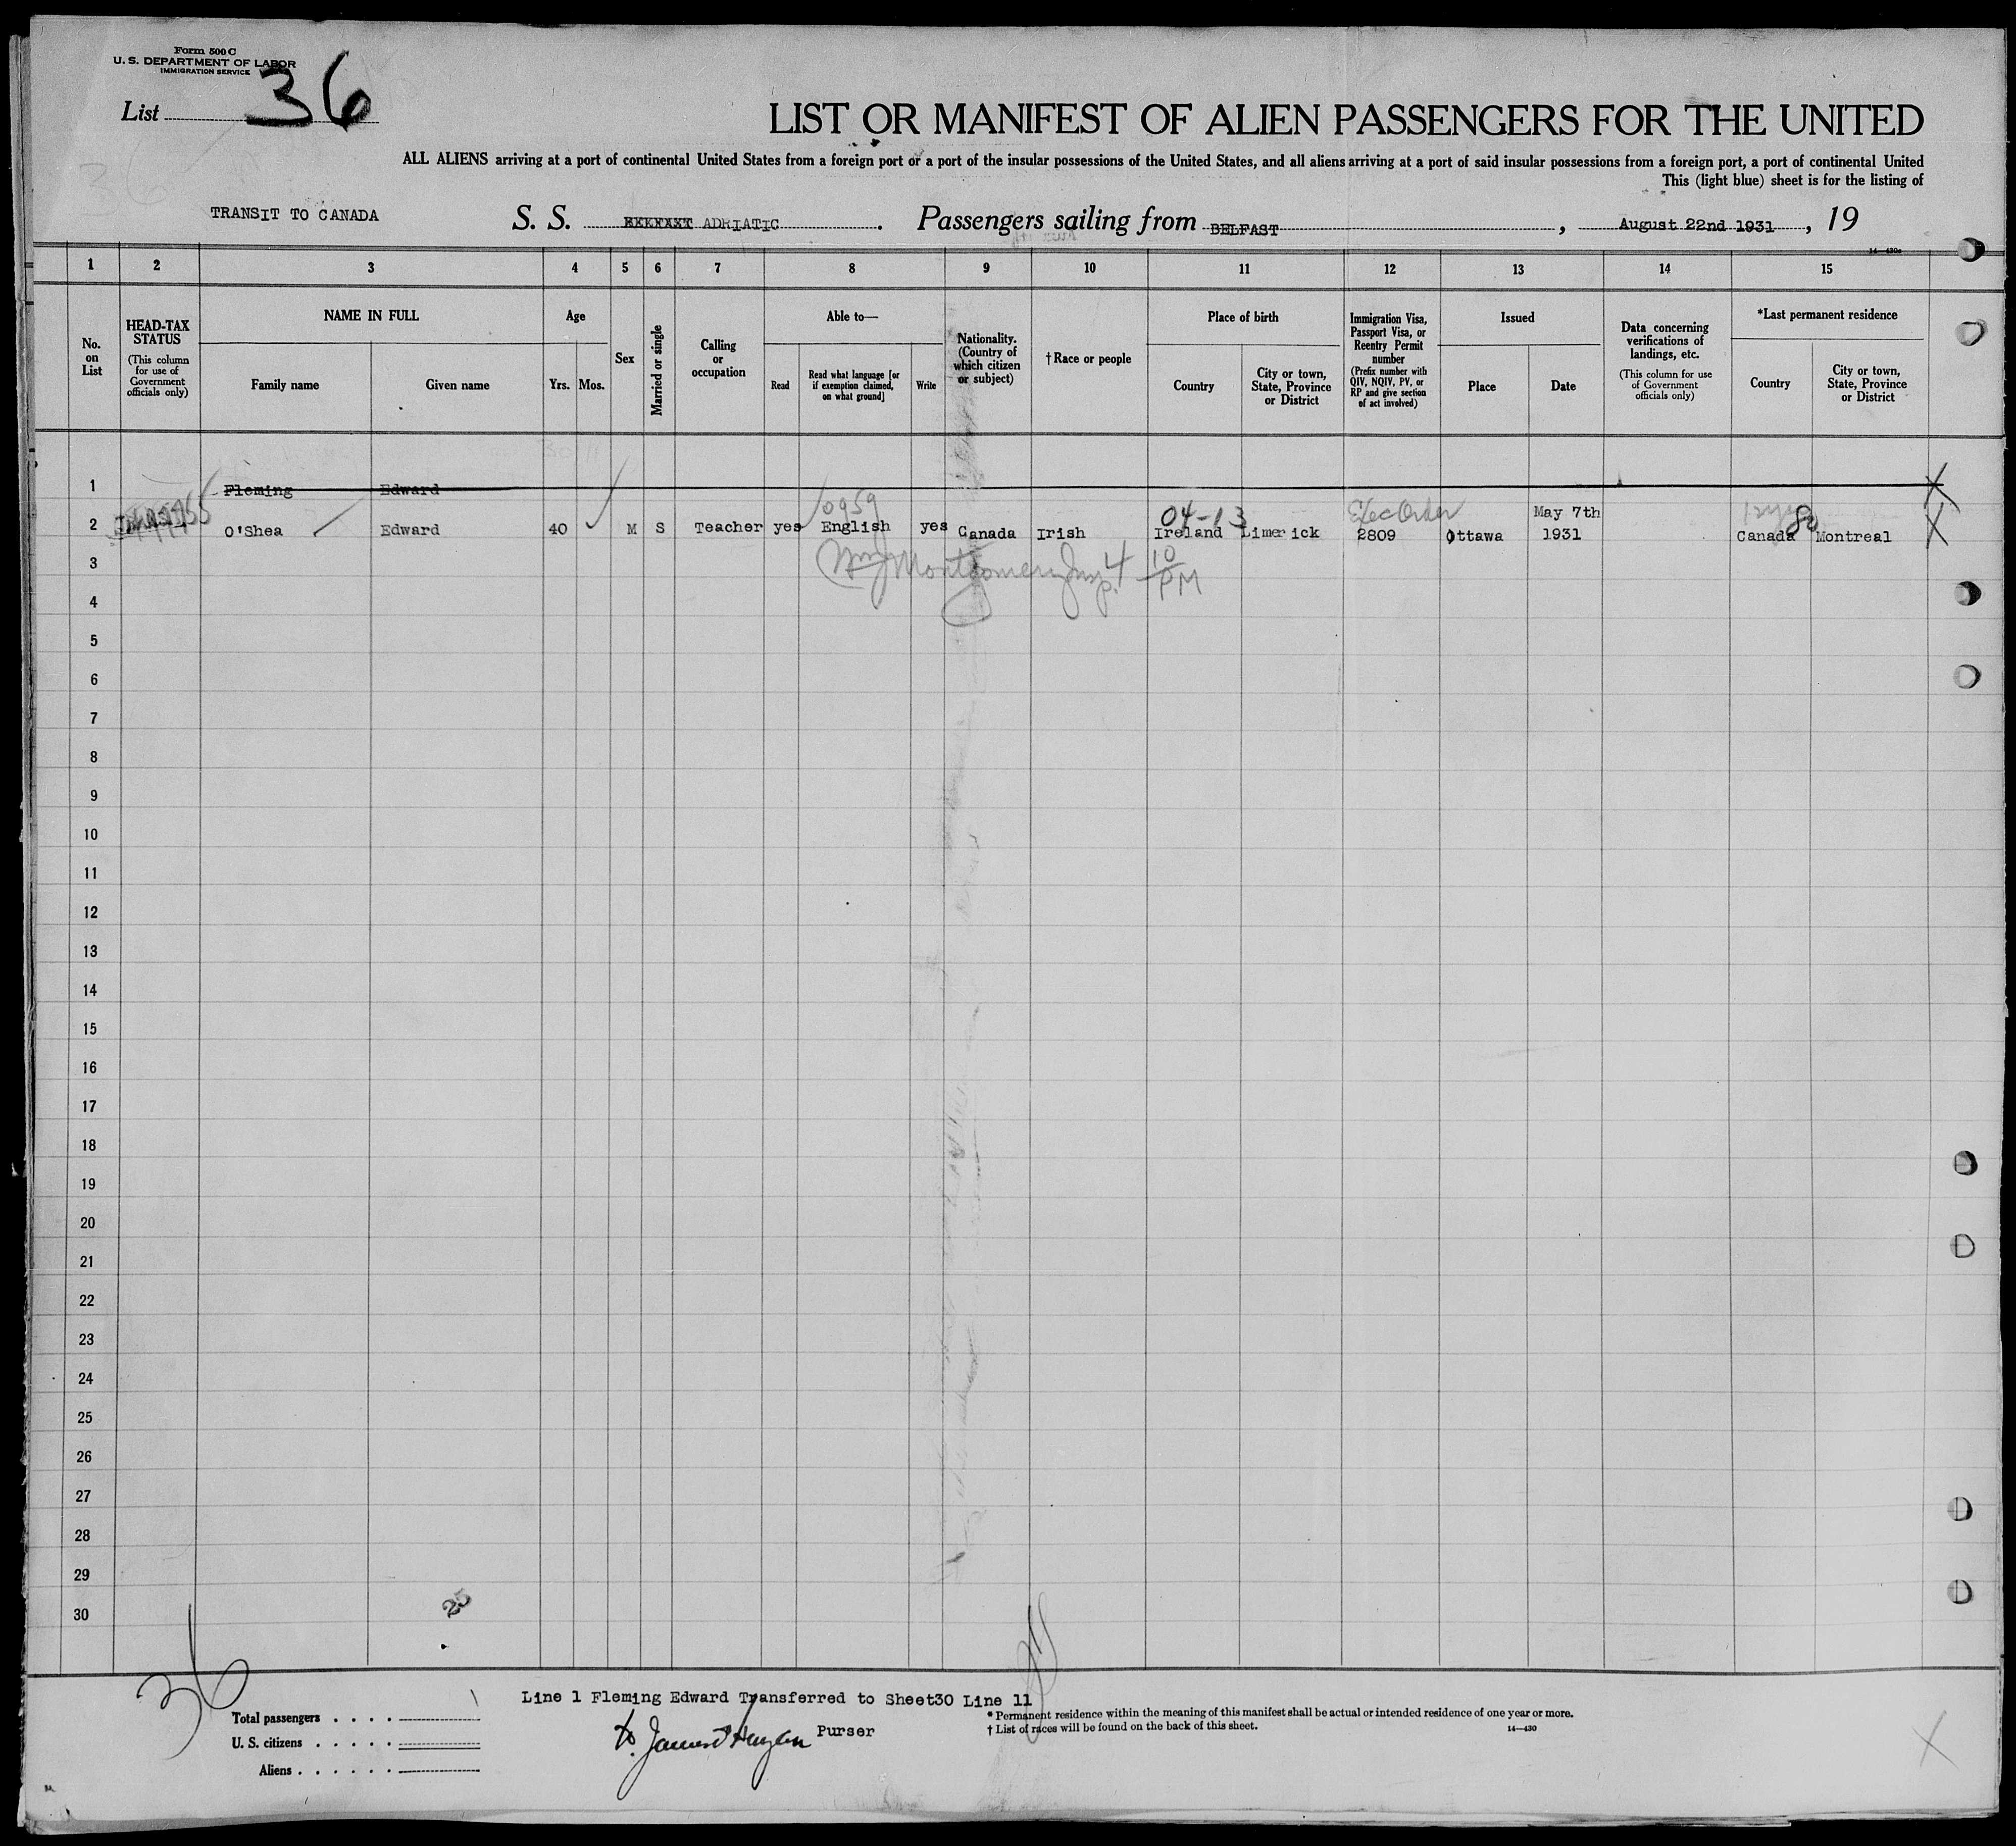 Form 500 C
U. S. DEPARTMENT OF LABOR
IMMIGRATION SERVICE
List 36
LIST OR MANIFEST OF ALIEN PASSENGERS FOR THE UNITED
ALL ALIENS arriving at a port of continental United States from a foreign port or a port of the insular possessions of the United States, and all aliens arriving at a port of said insular possessions from a foreign port, a port of continental United
This (light blue) sheet is for the listing of
TRANSIT TO CANADA
S. S. ADRIATIC. Passengers sailing from BELFAST, August 22nd 1931, 19
14—430a
1 2 3 4 5 6 7 8 9 10 11 12 13 14 15
No. on List
HEAD-TAX STATUS
(This column for use of Government officials only)
NAME IN FULL
Family name
Given name
Age
Yrs.
Mos.
Sex
Married or single
Calling or occupation
Able to—
Read
Read what language [or if exemption claimed, on what ground]
Write
Nationality. (Country of which citizen or subject)
† Race or people
Place of birth
Country
City or town, State, Province or District
Immigration Visa, Passport Visa, or Reentry Permit number
(Prefix number with QIV, NQIV, PV, or RP and give section of act involved)
Issued
Place
Date
Data concerning verifications of landings, etc.
(This column for use of Government officials only)
*Last permanent residence
Country
City or town, State, Province or District
1 Fleming Edward X
0959 04-13 Exec Order May 7th
2 O'Shea Edward 40 M S Teacher yes English yes Canada Irish Ireland Limerick 2809 Ottawa 1931 Canada Montreal X
Montgomery Insp. 4 10 PM
3
4
5
6
7
8
9
10
11
12
13
14
15
16
17
18
19
20
21
22
23
24
25
26
27
28
29
30
25
36
Line 1 Fleming Edward Transferred to Sheet30 Line 11
Total passengers . . . .
U. S. citizens . . . . .
Aliens . . . . . .
Purser
* Permanent residence within the meaning of this manifest shall be actual or intended residence of one year or more.
† List of races will be found on the back of this sheet.
14—430
X